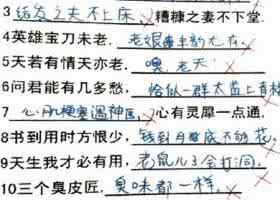 3 结发之夫不上床, 糟糠之妻不下堂.
4英雄宝刀未老, 老娘丰韵尤存.
5天若有情天亦老, 噢,老天
6问君能有几多愁, 恰似一群太监上青楼
7 心肌梗塞遇神医, 心有灵犀一点通.
8书到用时方恨少, 钱到月底不够花
9天生我才必有用, 老鼠儿子会打洞.
10三个臭皮匠, 臭味都一样.